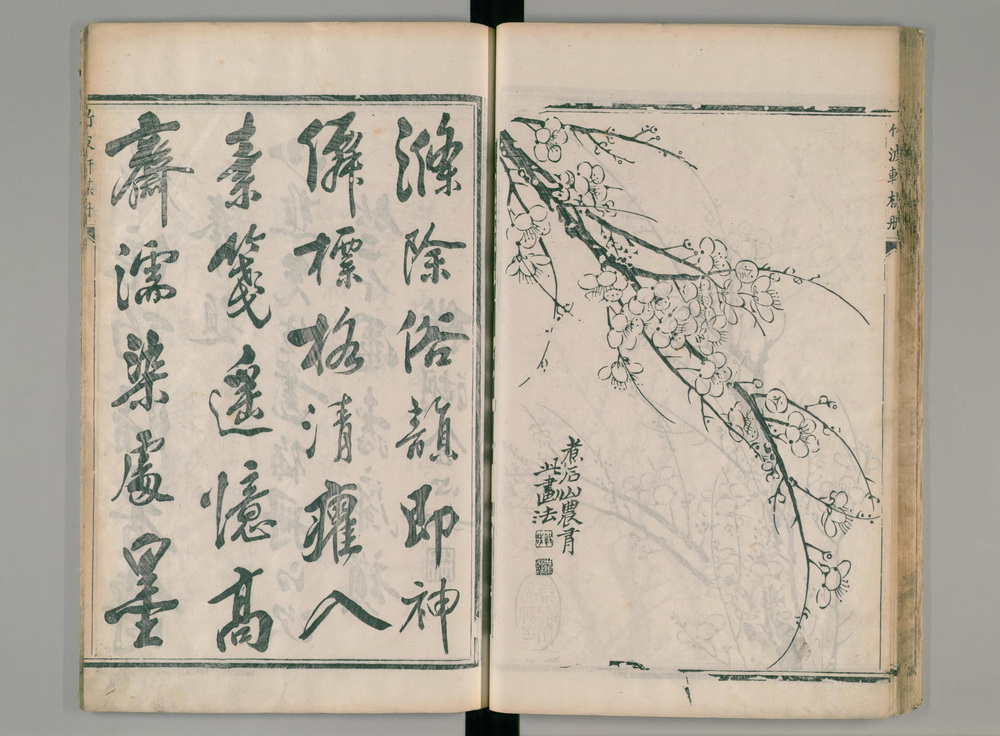 竹波軒梅冊
煮石山農有
此畫法
滌除俗韻即神
僊標格清癯入
素箋遙憶高
齋濡染處墨